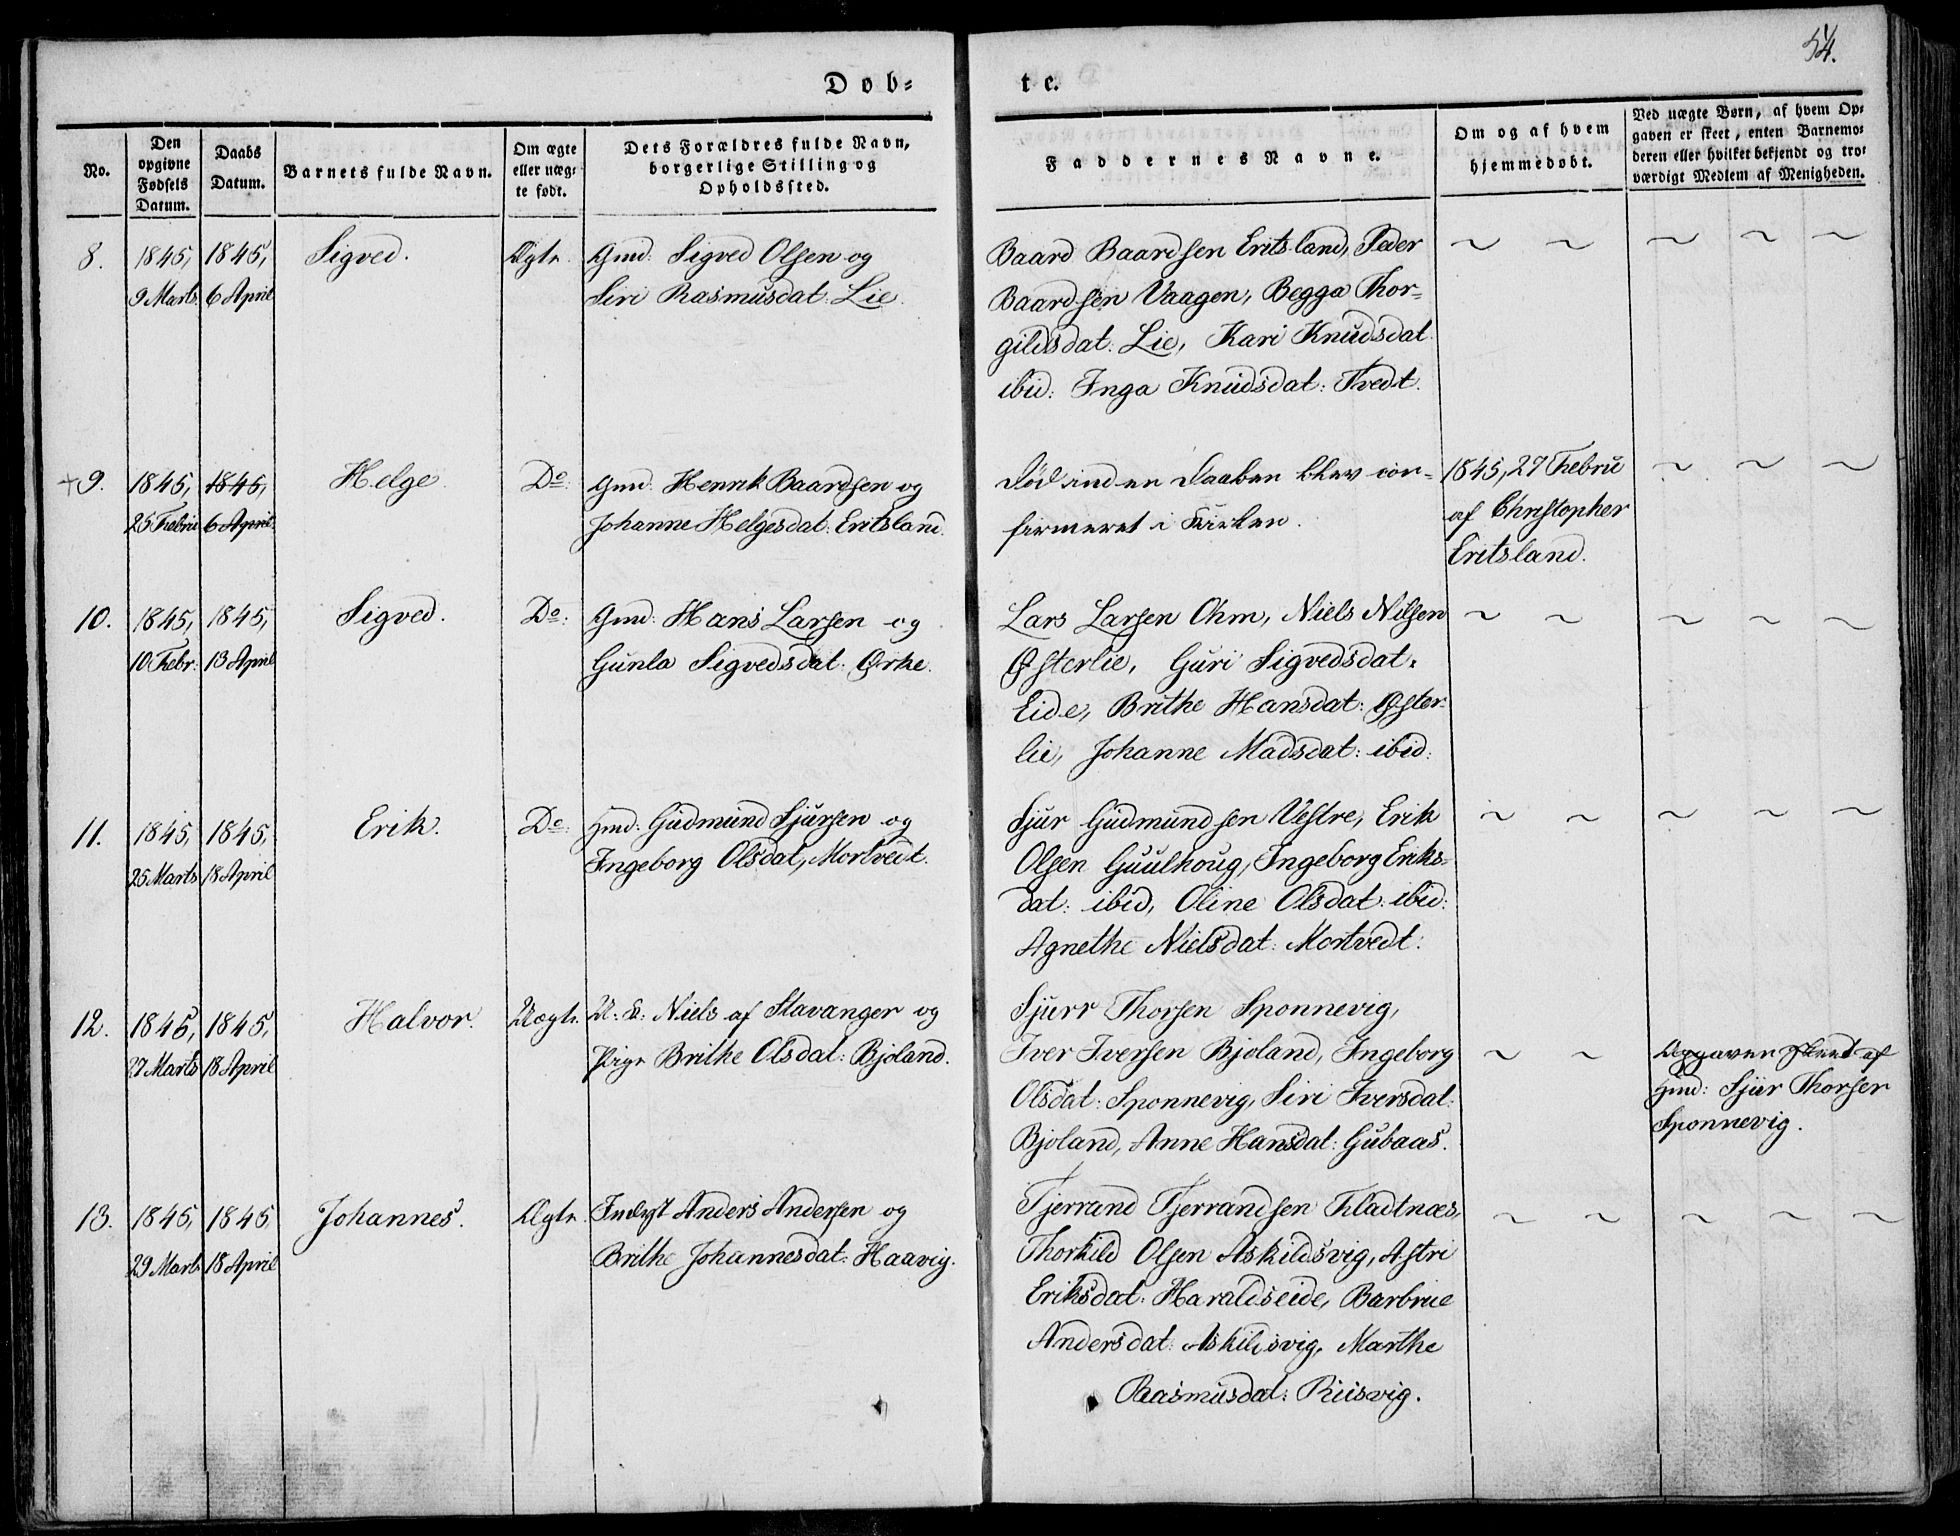 54.
Døb=
te.
No.
Den
opgivne
Fødsels
Datum.
Daabs
Datum.
Barnets fulde Navn.
Om ægte
eller uæg-
te født.
Dets Forældres fulde Navn,
borgerlige Stilling og
Opholdssted.
Faddernes Navne.
Om og af hvem
hjemmedøbt.
Ved uægte Børn, af hvem Op-
gaven er skeet, enten Barnemo-
deren eller hvilket bekjendt og tro-
værdigt Medlem af Menigheden.
8.
1845,
9 Marts
1845,
6 April
Sigved.
Ægte.
Gmd: Sigved Olsen og
Siri Rasmusdat: Lie.
Baard Baardsen Eritsland, Peder
Baardsen Vaagen, Begga Thor-
gildsdat: Lie, Kari Knudsdat:
ibid: Inga Knudsdat: Tvedt.
~ ~ ~ ~ ~
+9.
1845,
25 Febru
1845,
6 April
Helge
Do:
Gmd: Henrik Baardsen og
Johanne Helgesdat: Eritsland.
Død inden Daaben blev con-
firmeret i Kirken.
1845, 27 Febru
af Christopher
Eritsland.
~ ~ ~
10.
1845,
10 Febr.
1845,
13 April
Sigved.
Do:
Gmd: Hans Larsen og
Gunla Sigvedsdat: Ørke.
Lars Larsen Ohm, Niels Nilsen
Østerlie, Guri Sigvedsdat:
Eide, Brithe Hansdat: Øster-
lie, Johanne Madsdat: ibid:
~ ~ ~ ~ ~
11.
1845,
25 Marts
1845,
18 April
Erik.
Do:
Hmd: Gudmund Sjursen og
Ingeborg Olsdat, Mortvedt.
Sjur Gudmundsen Vestre, Erik
Olsen Guulhoug, Ingeborg Eriks-
dat: ibid, Oline Olsdat: ibid:
Agnethe Nielsdat: Mortvedt:
~ ~ ~ ~ ~
12.
1845,
27 Marts
1845,
18 April
Halvor.
Uægte.
U. K: Niels af Stavanger og
Pige Brithe Olsdat: Bjoland.
Sjurr Thorsen Sponnevig,
Iver Iversen Bjoland, Ingeborg
Olsdat: Sponnevig, Siri Iversdat:
Bjoland, Anne Hansdat: Gubaas.
~ ~
Opgaven skeet af
Hmd: Sjur Thorsen
Sponnevig.
13.
1845,
29 Marts
1845
18 April
Johannes.
Ægte.
Inderst Anders Andersen og
Brithe Johannesdat: Haavig.
Tjerrand Tjerrandsen Fladtnæs,
Thorkild Olsen Askildsvig, Astri
Eriksdat: Haraldseide, Barbrue
Andersdat: Askildsvig, Marthe
Rasmusdat: Riisvig.
~ ~ ~ ~ ~